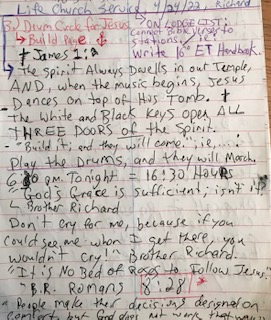 Life Church Service, 4/24/22, Richard
3) Drum Circle for Jesus
↳ Build Page
→ ON LODGE LIST:
Connect to
stations, i.e.
Write 16" ET Handbook.
✝ James 1:
The Spirit Always Dwells in our Temple,
AND, when the music begins, Jesus
Dances on top of His Tomb. ✝
The White and Black Keys open ALL
THREE DOORS of the Spirit.
"Build it, and they will come." i.e.,
Play the Drums, and they will March.
6:30 p.m. Tonight = 16:30 Hours
"God's Grace is sufficient, isn't it?"
↳ Brother Richard
Don't cry for me, because if you
could see me when I get there, you
wouldn't cry!" Brother Richard.
"It is No Bed of Roses to Follow Jesus."
~ B.R. Romans 8:28 *
People make their decisions designed on
comfort, but God does not work that way